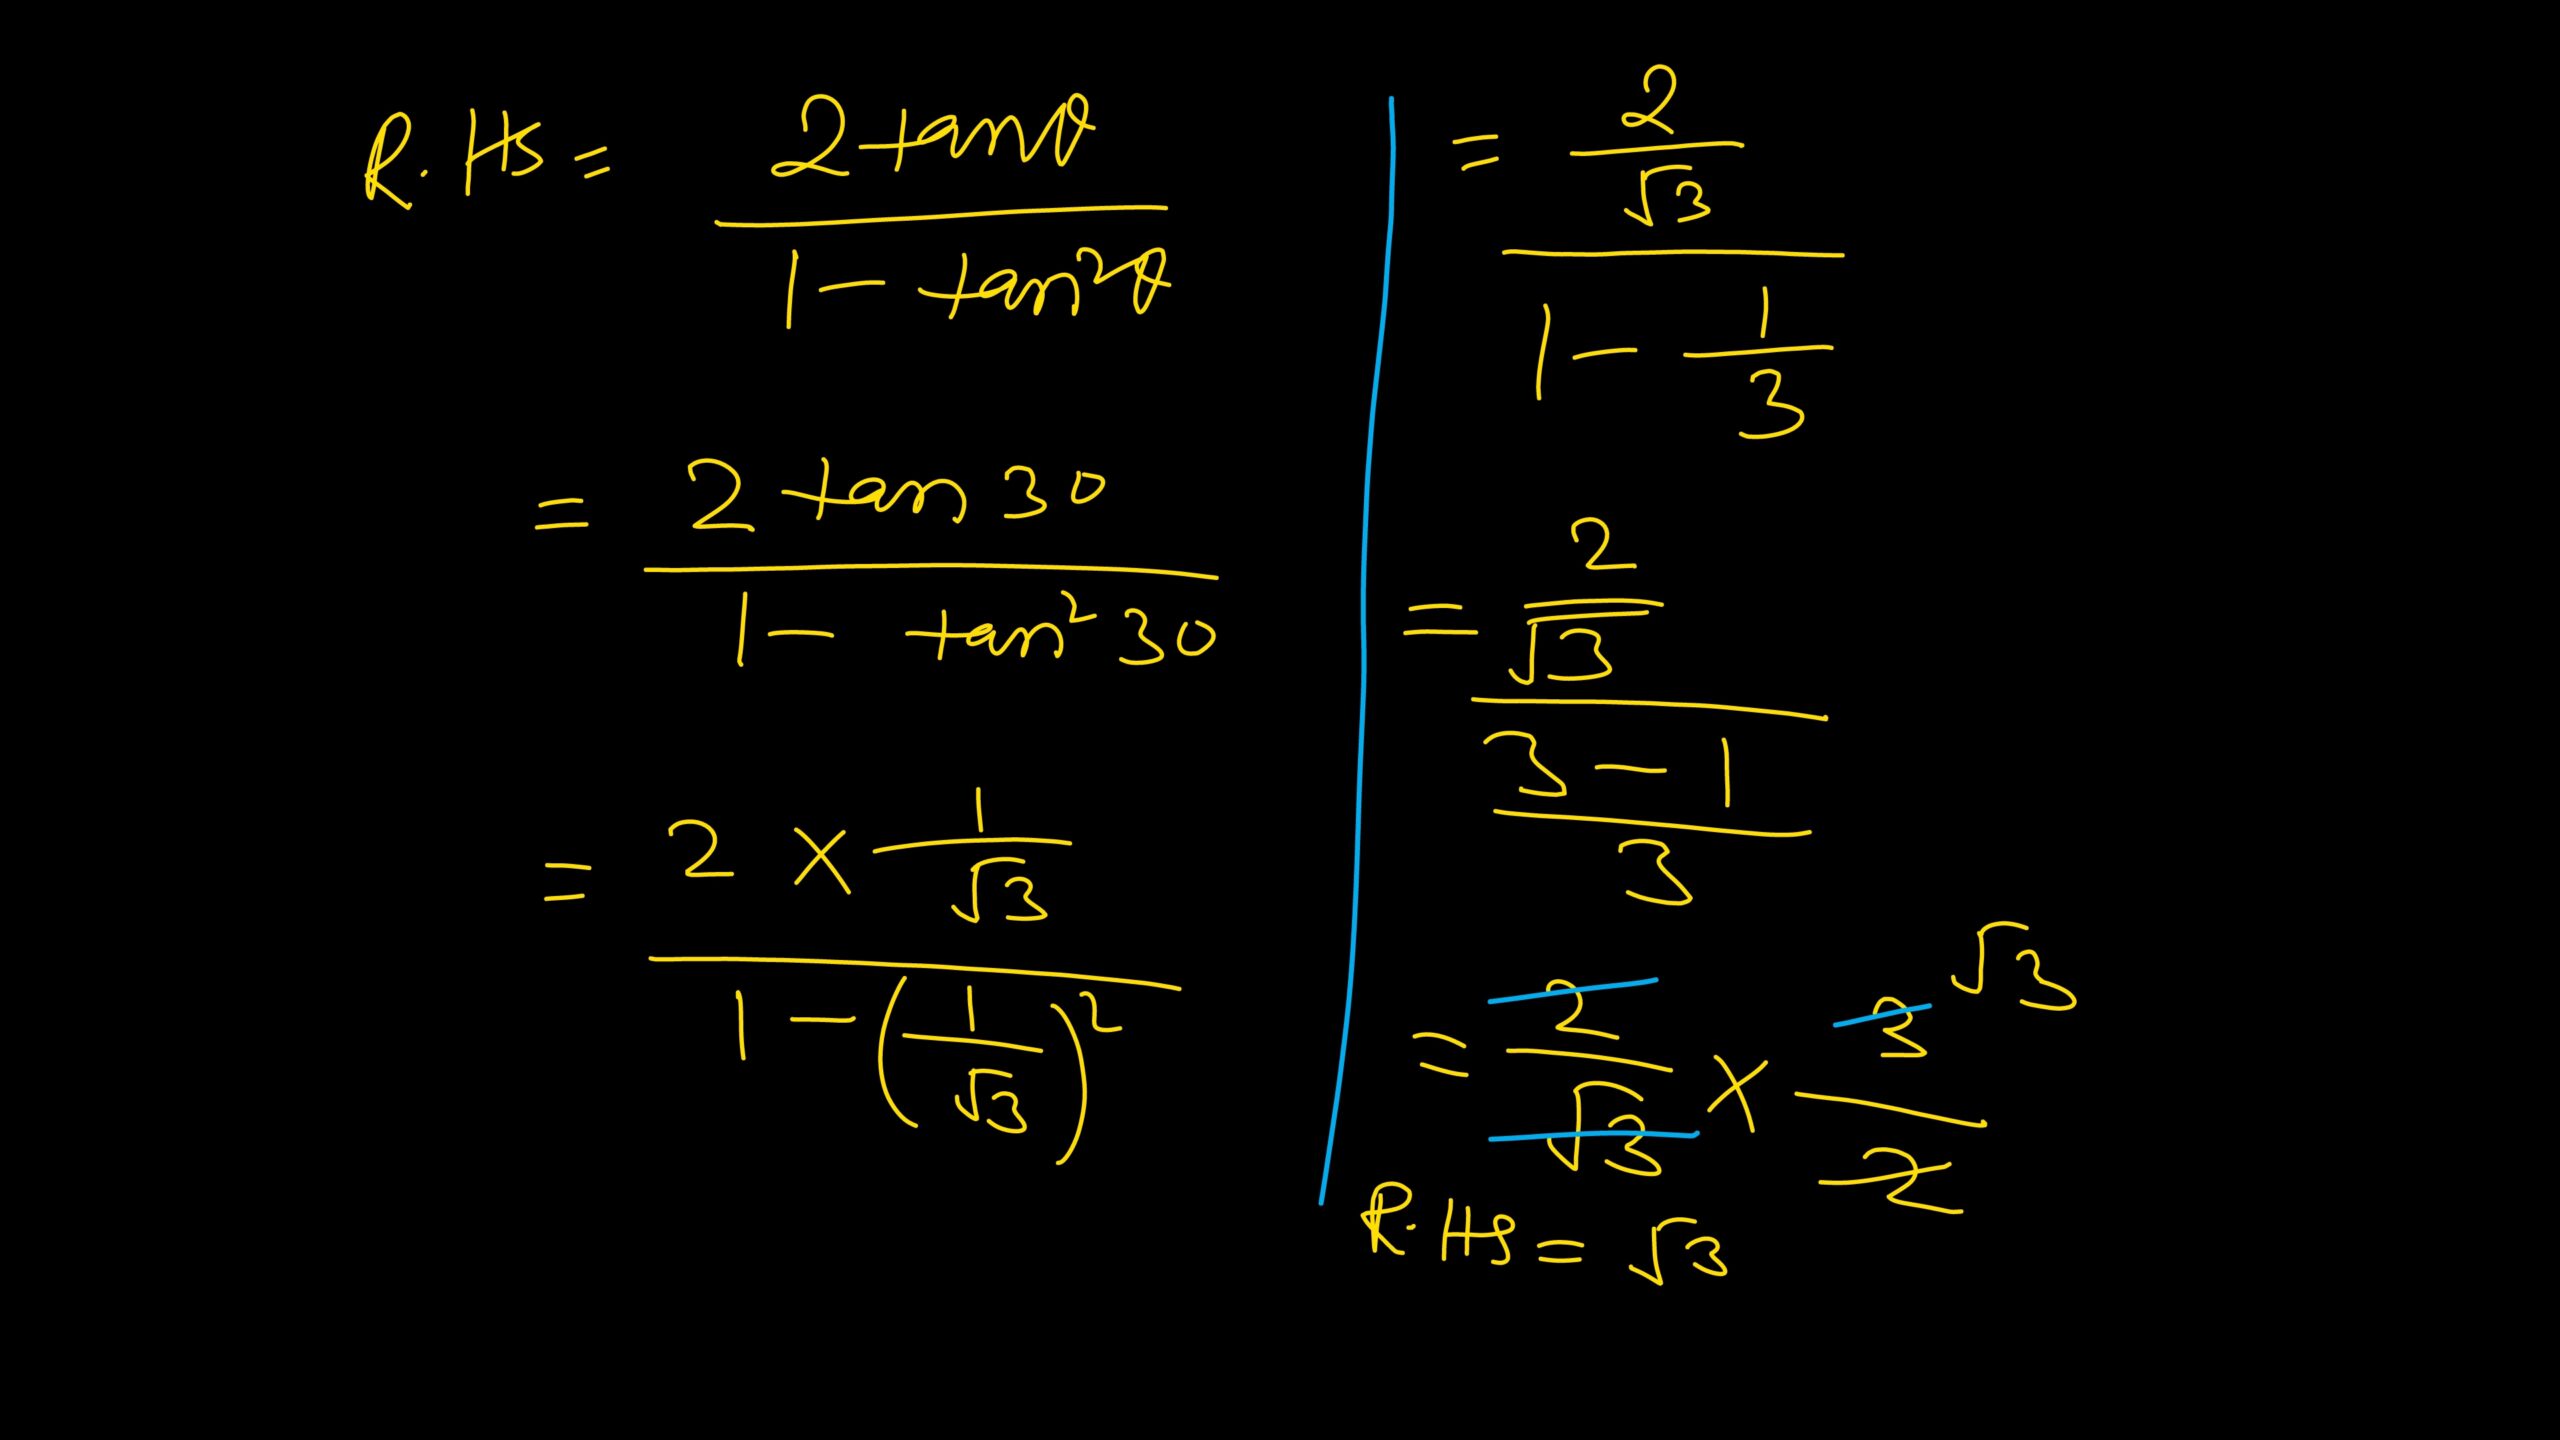 R.HS = 2 tanθ / 1 − tan²θ
= 2 tan 30 / 1 − tan² 30
= 2 × 1/√3 / 1 − (1/√3)²
= 2/√3 / 1 − 1/3
= 2/√3 / 3 − 1/3
= 2/√3 × 3/2 √3
R.HS = √3